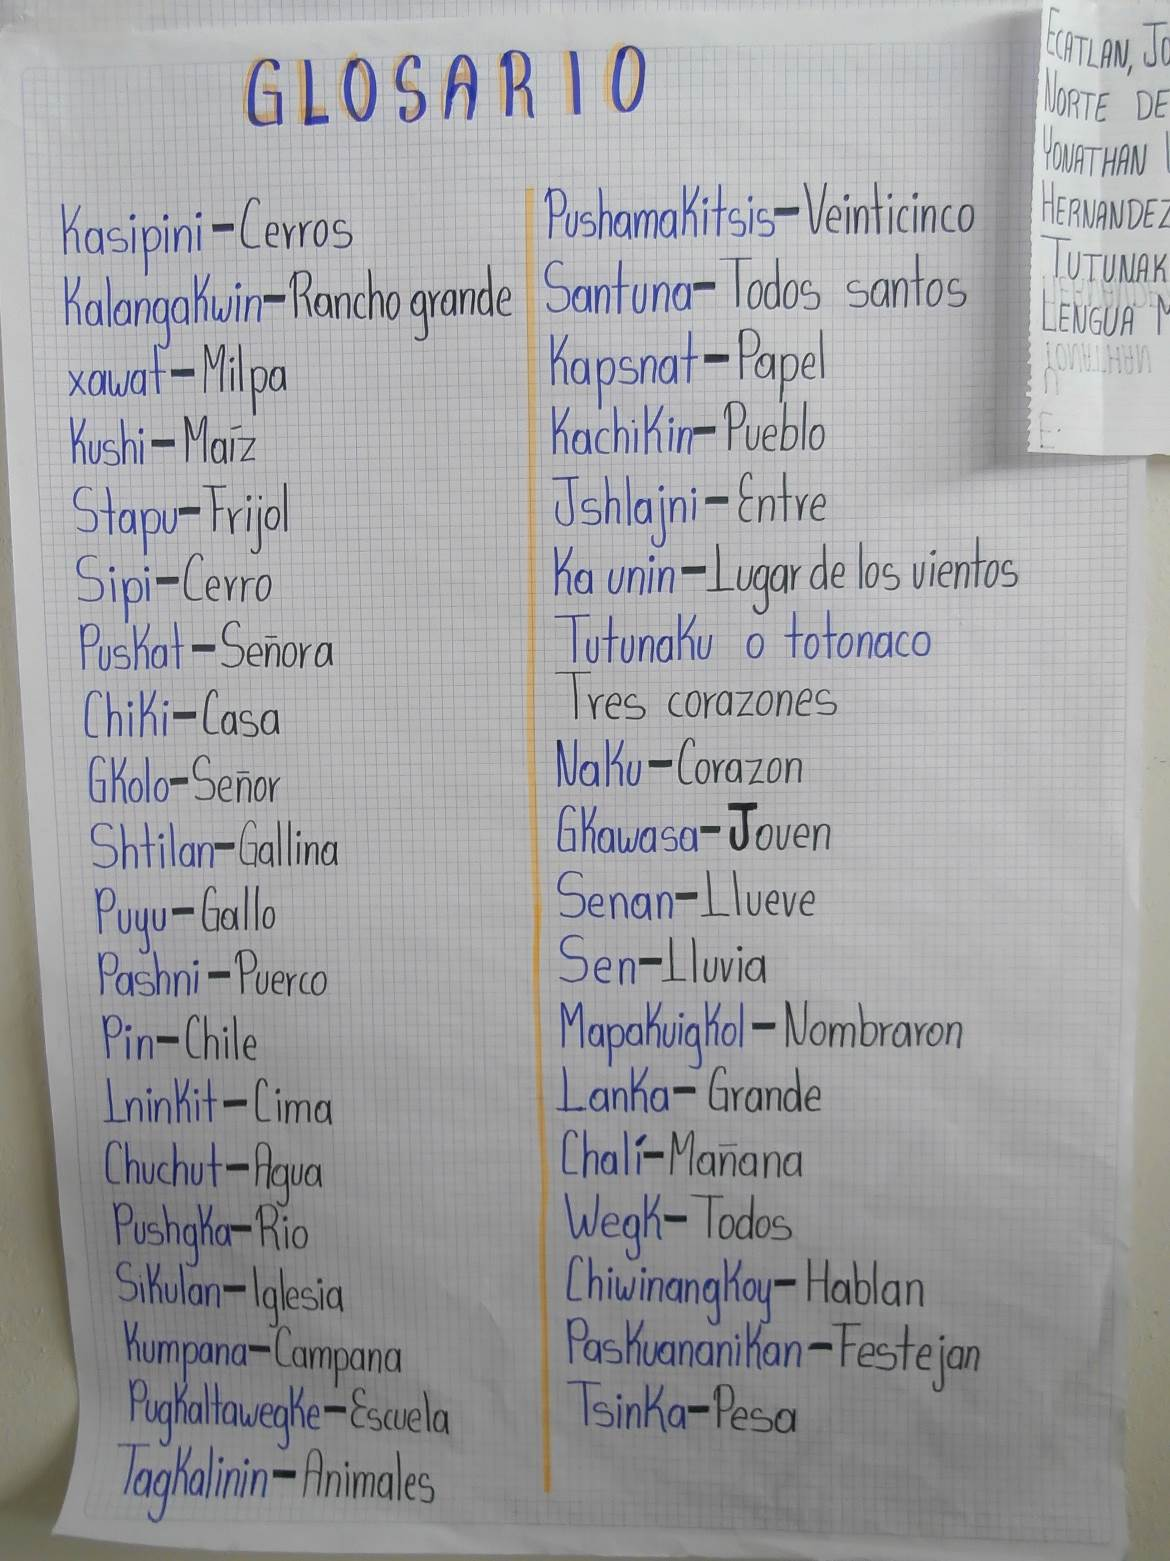 GLOSARIO
Kasipini-Cerros
Kalangakwin-Rancho grande
xawat-Milpa
Kushi-Maíz
Stapu-Frijol
Sipi-Cerro
Puskat-Señora
Chiki-Casa
Gkolo-Señor
Shtilan-Gallina
Puyu-Gallo
Pashni-Puerco
Pin-Chile
Ininkit-Cima
Chuchut-Agua
Pushgka-Río
Sikulan-Iglesia
Kumpana-Campana
Pugkaltawegke-Escuela
Tagkalinin-Animales
Pushamakitsis-Veinticinco
Santuna-Todos santos
Kapsnat-Papel
Kachikin-Pueblo
Jshlajni-Entre
Ka unin-Lugar de los vientos
Tutunaku o totonaco
Tres corazones
Naku-Corazon
Gkawasa-Joven
Senan-Llueve
Sen-Lluvia
Mapakuigkol-Nombraron
Lanka-Grande
Chalí-Mañana
Wegk-Todos
Chiwinangkoy-Hablan
Paskuananikan-Festejan
Tsinka-Pesa
ECATLAN, JO
NORTE DE
YONATHAN
HERNANDEZ
TUTUNAK
LENGUA M